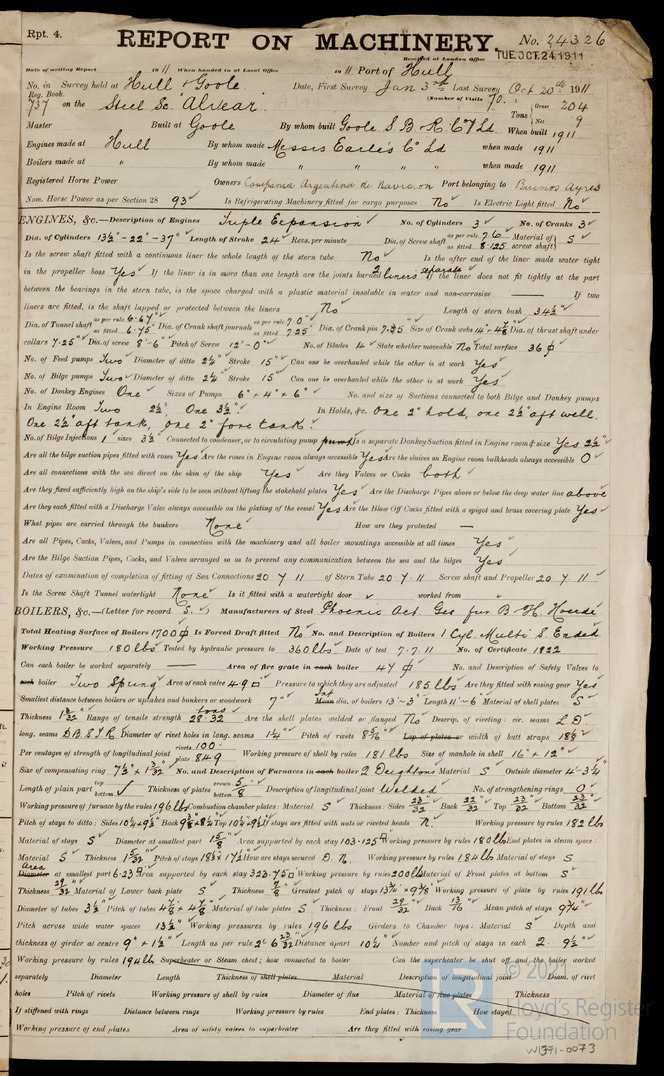 Rpt. 4.
REPORT ON MACHINERY. No. 24326
Received at London Office TUE.OCT.24.1911
Date of writing Report 1911 When handed in at Local Office 1911 Port of Hull
No. in Survey held at Hull & Goole Date, First Survey Jan 3rd Last Survey Oct 20th 1911
Reg. Book. (Number of Visits 70.)
737 on the Steel Sc "Alvear" Tons Gross 204 Net 9
Master Built at Goole By whom built Goole S. B & R. Coy Ld When built 1911
Engines made at Hull By whom made Messrs Earle's Co Ld when made 1911
Boilers made at " By whom made " " " when made 1911
Registered Horse Power Owners Compania Argentina de Navicion Port belonging to Buenos Ayres
Nom. Horse Power as per Section 28 93 Is Refrigerating Machinery fitted for cargo purposes No Is Electric Light fitted No
ENGINES, &c.—Description of Engines Triple Expansion No. of Cylinders 3 No. of Cranks 3
Dia. of Cylinders 13½"-22"-37" Length of Stroke 24" Revs. per minute Dia. of Screw shaft as per rule 7.6 as fitted 8.125 Material of screw shaft S
Is the screw shaft fitted with a continuous liner the whole length of the stern tube No Is the after end of the liner made water tight
in the propeller boss Yes If the liner is in more than one length are the joints burned 2 liners separate If the liner does not fit tightly at the part
between the bearings in the stern tube, is the space charged with a plastic material insoluble in water and non-corrosive — If two
liners are fitted, is the shaft lapped or protected between the liners No Length of stern bush 34½"
Dia. of Tunnel shaft as per rule 6.67" as fitted 6.75" Dia. of Crank shaft journals as per rule 7.0" as fitted 7.25" Dia. of Crank pin 7.25 Size of Crank webs Dia. of thrust shaft under
collars 7.25" Dia. of screw 8'-6" Pitch of Screw 12'-0" No. of Blades 4 State whether moveable No Total surface 36
No. of Feed pumps Two Diameter of ditto 2¼" Stroke 15" Can one be overhauled while the other is at work Yes
No. of Bilge pumps Two Diameter of ditto 2¼" Stroke 15" Can one be overhauled while the other is at work Yes
No. of Donkey Engines One Sizes of Pumps 6" × 4" × 6" No. and size of Suctions connected to both Bilge and Donkey pumps
In Engine Room Two 2½", One 3½" In Holds, &c. One 2" hold, one 2½" aft well.
One 2½" aft tank, One 2" fore tank.
No. of Bilge Injections 1 sizes 3½" Connected to condenser, or to circulating pump pump Is a separate Donkey Suction fitted in Engine room & size Yes 2½"
Are all the bilge suction pipes fitted with roses Yes Are the roses in Engine room always accessible Yes Are the sluices on Engine room bulkheads always accessible 0
Are all connections with the sea direct on the skin of the ship Yes Are they Valves or Cocks both
Are they fixed sufficiently high on the ship's side to be seen without lifting the stokehold plates Yes Are the Discharge Pipes above or below the deep water line above
Are they each fitted with a Discharge Valve always accessible on the plating of the vessel Yes Are the Blow Off Cocks fitted with a spigot and brass covering plate Yes
What pipes are carried through the bunkers None How are they protected —
Are all Pipes, Cocks, Valves, and Pumps in connection with the machinery and all boiler mountings accessible at all times Yes
Are the Bilge Suction Pipes, Cocks, and Valves arranged so as to prevent any communication between the sea and the bilges Yes
Dates of examination of completion of fitting of Sea Connections 20.7.11 of Stern Tube 20.7.11 Screw shaft and Propeller 20.7.11
Is the Screw Shaft Tunnel watertight None Is it fitted with a watertight door worked from
BOILERS, &c.—(Letter for record S.) Manufacturers of Steel Phoenix Act Ges fur B & H. Hoerde
Total Heating Surface of Boilers 1700 Is Forced Draft fitted No No. and Description of Boilers 1 Cyl. Multi S. Ended
Working Pressure 180 lbs Tested by hydraulic pressure to 360 lbs Date of test 7.7.11 No. of Certificate 1822
Can each boiler be worked separately — Area of fire grate in each boiler 47 No. and Description of Safety Valves to
each boiler Two Spring Area of each valve 4.90 Pressure to which they are adjusted 185 lbs Are they fitted with easing gear Yes
Smallest distance between boilers or uptakes and bunkers or woodwork 7" Mean dia. of boilers 13'-3" Length 11'-6" Material of shell plates S
Thickness Range of tensile strength 28.32 tons Are the shell plates welded or flanged No Descrip. of riveting: cir. seams L.D
long. seams D.B.S.T.R Diameter of rivet holes in long. seams 1¼" Pitch of rivets Lap of plates or width of butt straps
Per centages of strength of longitudinal joint rivets 100 plate 84.9 Working pressure of shell by rules 181 lbs Size of manhole in shell 16" × 12"
Size of compensating ring No. and Description of Furnaces in each boiler 2 Deightons Material S Outside diameter 4'-3¾"
Length of plain part top bottom Thickness of plates crown bottom Description of longitudinal joint Welded No. of strengthening rings 0
Working pressure of furnace by the rules 196 lbs Combustion chamber plates: Material S Thickness: Sides 23/32 Back 22/32 Top 23/32 Bottom 23/32
Pitch of stays to ditto: Sides Back Top If stays are fitted with nuts or riveted heads N. Working pressure by rules 182 lbs
Material of stays S Diameter at smallest part Area supported by each stay 103.125 Working pressure by rules 180 lbs End plates in steam space:
Material S Thickness Pitch of stays How are stays secured D.N. Working pressure by rules 184 lbs Material of stays S
Area Diameter at smallest part 6.23 Area supported by each stay 323.75 Working pressure by rules 200 lbs Material of Front plates at bottom S
Thickness Material of Lower back plate S Thickness 7/8 Greatest pitch of stays Working pressure of plate by rules 191 lbs
Diameter of tubes 3½" Pitch of tubes Material of tube plates S Thickness: Front 29/32 Back 13/16 Mean pitch of stays 9¾"
Pitch across wide water spaces 13½" Working pressures by rules 196 lbs Girders to Chamber tops: Material S Depth and
thickness of girder at centre 9" × 1½" Length as per rule Distance apart 10¼" Number and pitch of stays in each 2
Working pressure by rules 194 lbs Superheater or Steam chest; how connected to boiler Can the superheater be shut off and the boiler worked
separately Diameter Length Thickness of shell plates Material Description of longitudinal joint Diam. of rivet
holes Pitch of rivets Working pressure of shell by rules Diameter of flue Material of flue plates Thickness
If stiffened with rings Distance between rings Working pressure by rules End plates: Thickness How stayed
Working pressure of end plates Area of safety valves to superheater Are they fitted with easing gear
© 2021
LR
Lloyd's Register
Foundation
W1371-0073